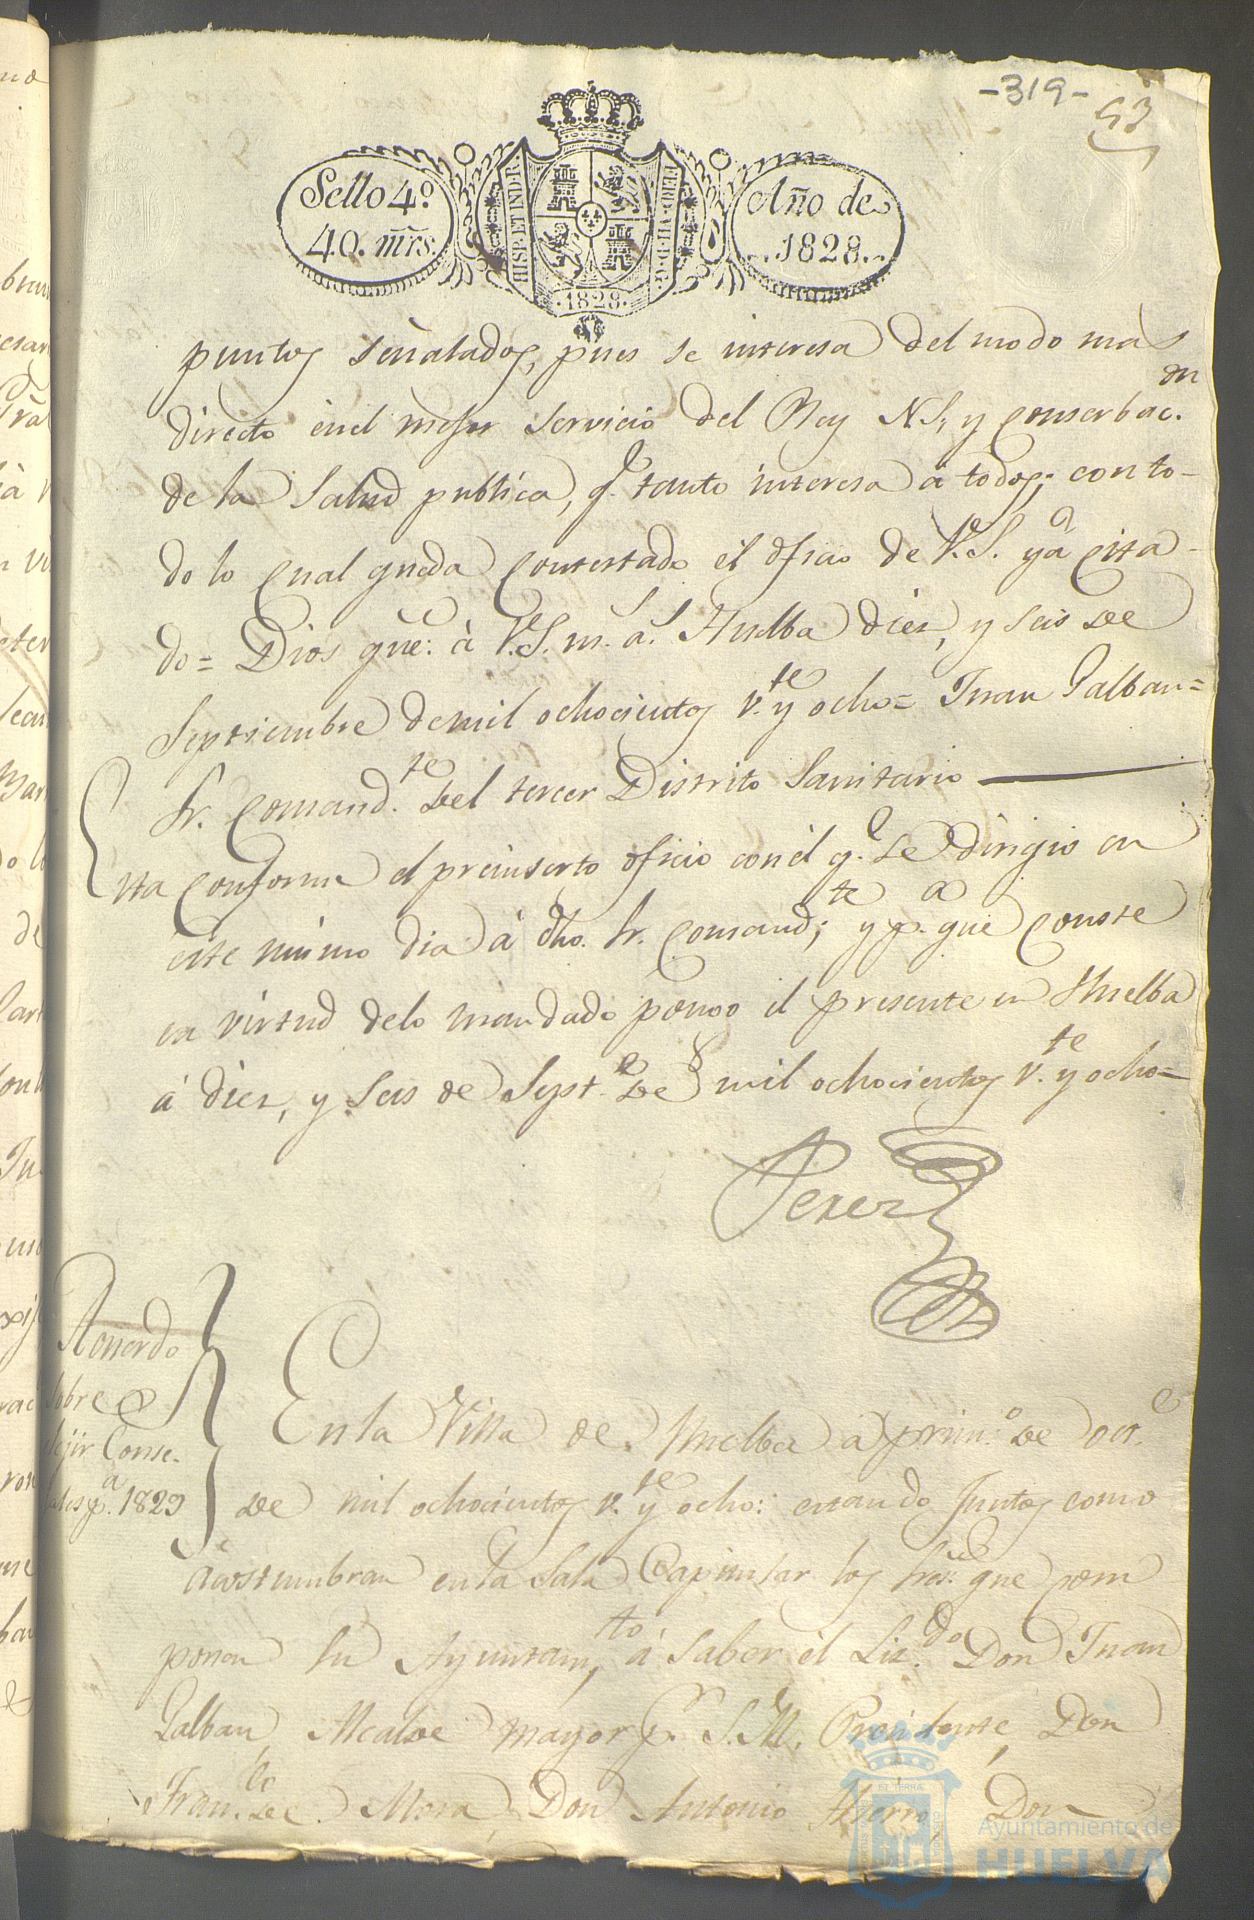 -319-
93
Sello 4º.
40. mrs.
HISP. ET IND. R.
FERD. VII. D. G.
.1828.
Año de
..1828..
puntos señalados, pues se interesa del modo mas
directo en el mejor servicio del Rey N.S, y conserbac.on
de la Salud publica, q.e tanto interesa á todos; con to-
do lo cual queda contestado el oficio de V.S. yá cita-
do= Dios gue. á V.S. m. a.s Huelba diez, y seis de
Septiembre de mil ochocientos v.te y ocho= Juan Galban=
Sr. Comand.te del tercer Distrito Sanitario
Esta conforme el preinserto oficio con el q.e se dirigio en
este mismo dia á dho. Sr. Comand.te; y p.a que conste
en virtud de lo mandado pongo el presente en Huelba
á diez, y seis de Sept.e de mil ochocientos v.te y ocho=
Perez
Acuerdo
sobre
elejir Conse-
jales p.a 1829
En la Villa de Huelba á prim.o de oct.e
de mil ochocientos v.te y ocho: estando juntos como
acostumbran en la Sala Capitular los Sres. que com
ponen su Ayuntam.to, á saber el Liz.do Don Juan
Galban, Alcalde mayor p.r S.M. Presidente, Don
Fran.co de Mora, Don Antonio Hierro, Don
Ayuntamiento de
HUELVA